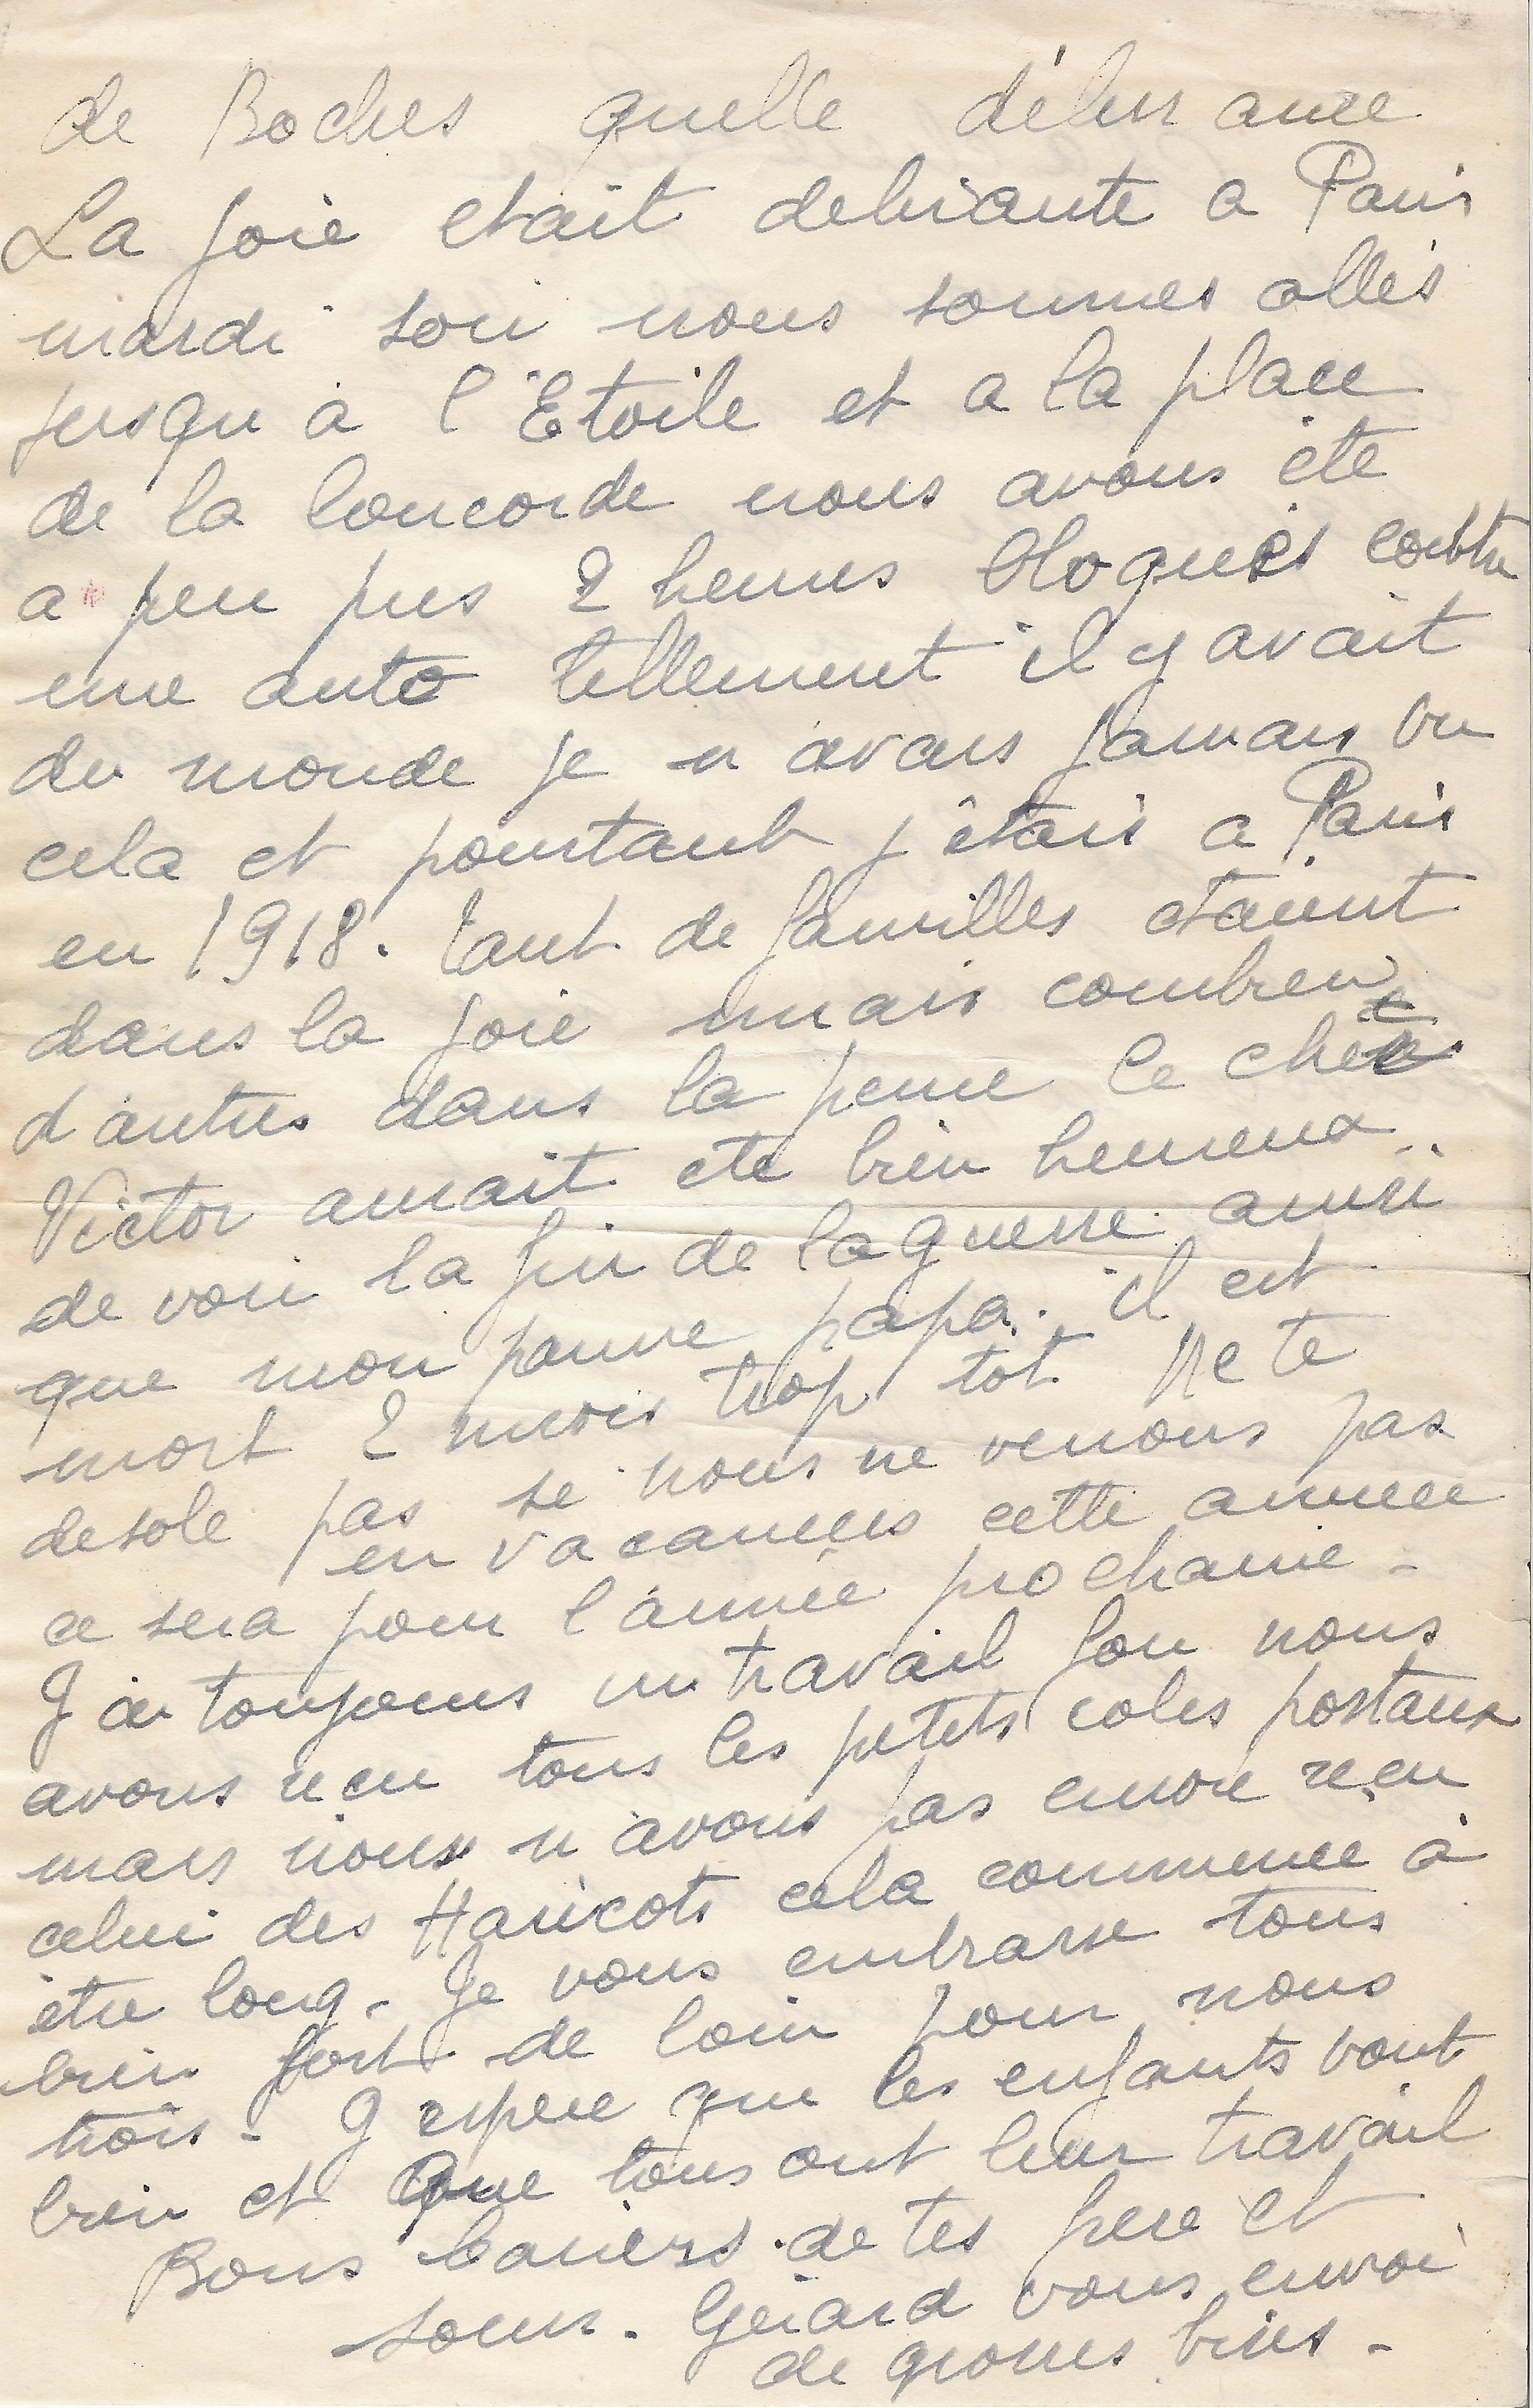 de Boches quelle délivrance
La joie etait delirante a Paris
mardi soir nous sommes allés
jusqu à l'Etoile et a la place
de la Concorde nous avons été
a peu pres 2 heures bloqués contre
une auto tellement il y avait
du monde je n avais jamais vu
cela et pourtant j étais a Paris
en 1918. Tant de familles etaient
dans la joie mais combien
d autres dans la peine le cher
Victor aurait ete bien heureux
de voir la fin de la guerre ainsi
que mon pauvre papa. il est
mort 2 mois trop tot Ne te
desole pas si nous ne venons pas
en vacances cette annee
ce sera pour l'année prochaine -
J ai toujours un travail fou nous
avons recu tous les petits colis postaux
mais nous n avons pas encore reçu
celui des Haricots cela commence à
être long - Je vous embrasse tous
bien fort de loin pour nous
trois - J espere que les enfants vont
bien et que tous ont leur travail
Bons baisers de tes frere et
soeur - Gérard vous envoi
de grosses bises -